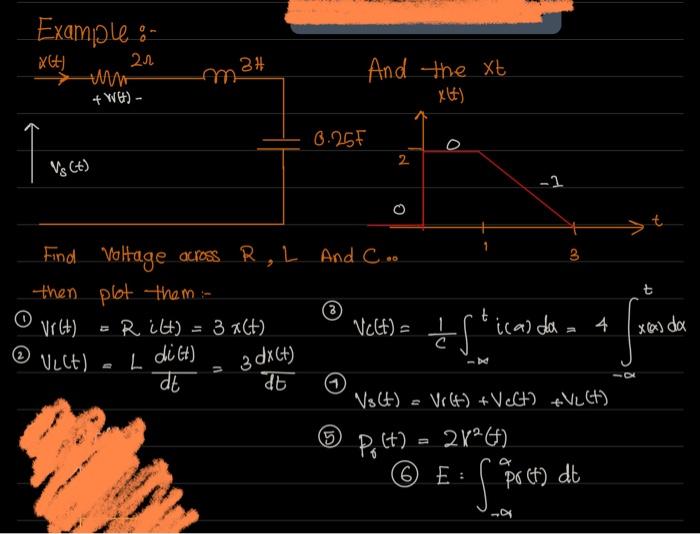 Example :-
x(t) 2Ω 3H
+ Vr(t) -
Vs(t)
0.25F
And the xt
x(t)
2
0
0
-1
t
1
3
Find Voltage across R, L And C..
then plot them :-
① Vr(t) = R i(t) = 3 x(t)
② VL(t) = L di(t)/dt = 3 dx(t)/dt
③ Vc(t) = 1/c ∫_{-∞}^{t} i(α) dα = 4 ∫_{-∞}^{t} x(α) dα
④ Vs(t) = Vr(t) + Vc(t) + VL(t)
⑤ Pr(t) = 2V²(t)
⑥ E : ∫_{-∞}^{∞} Pr(t) dt